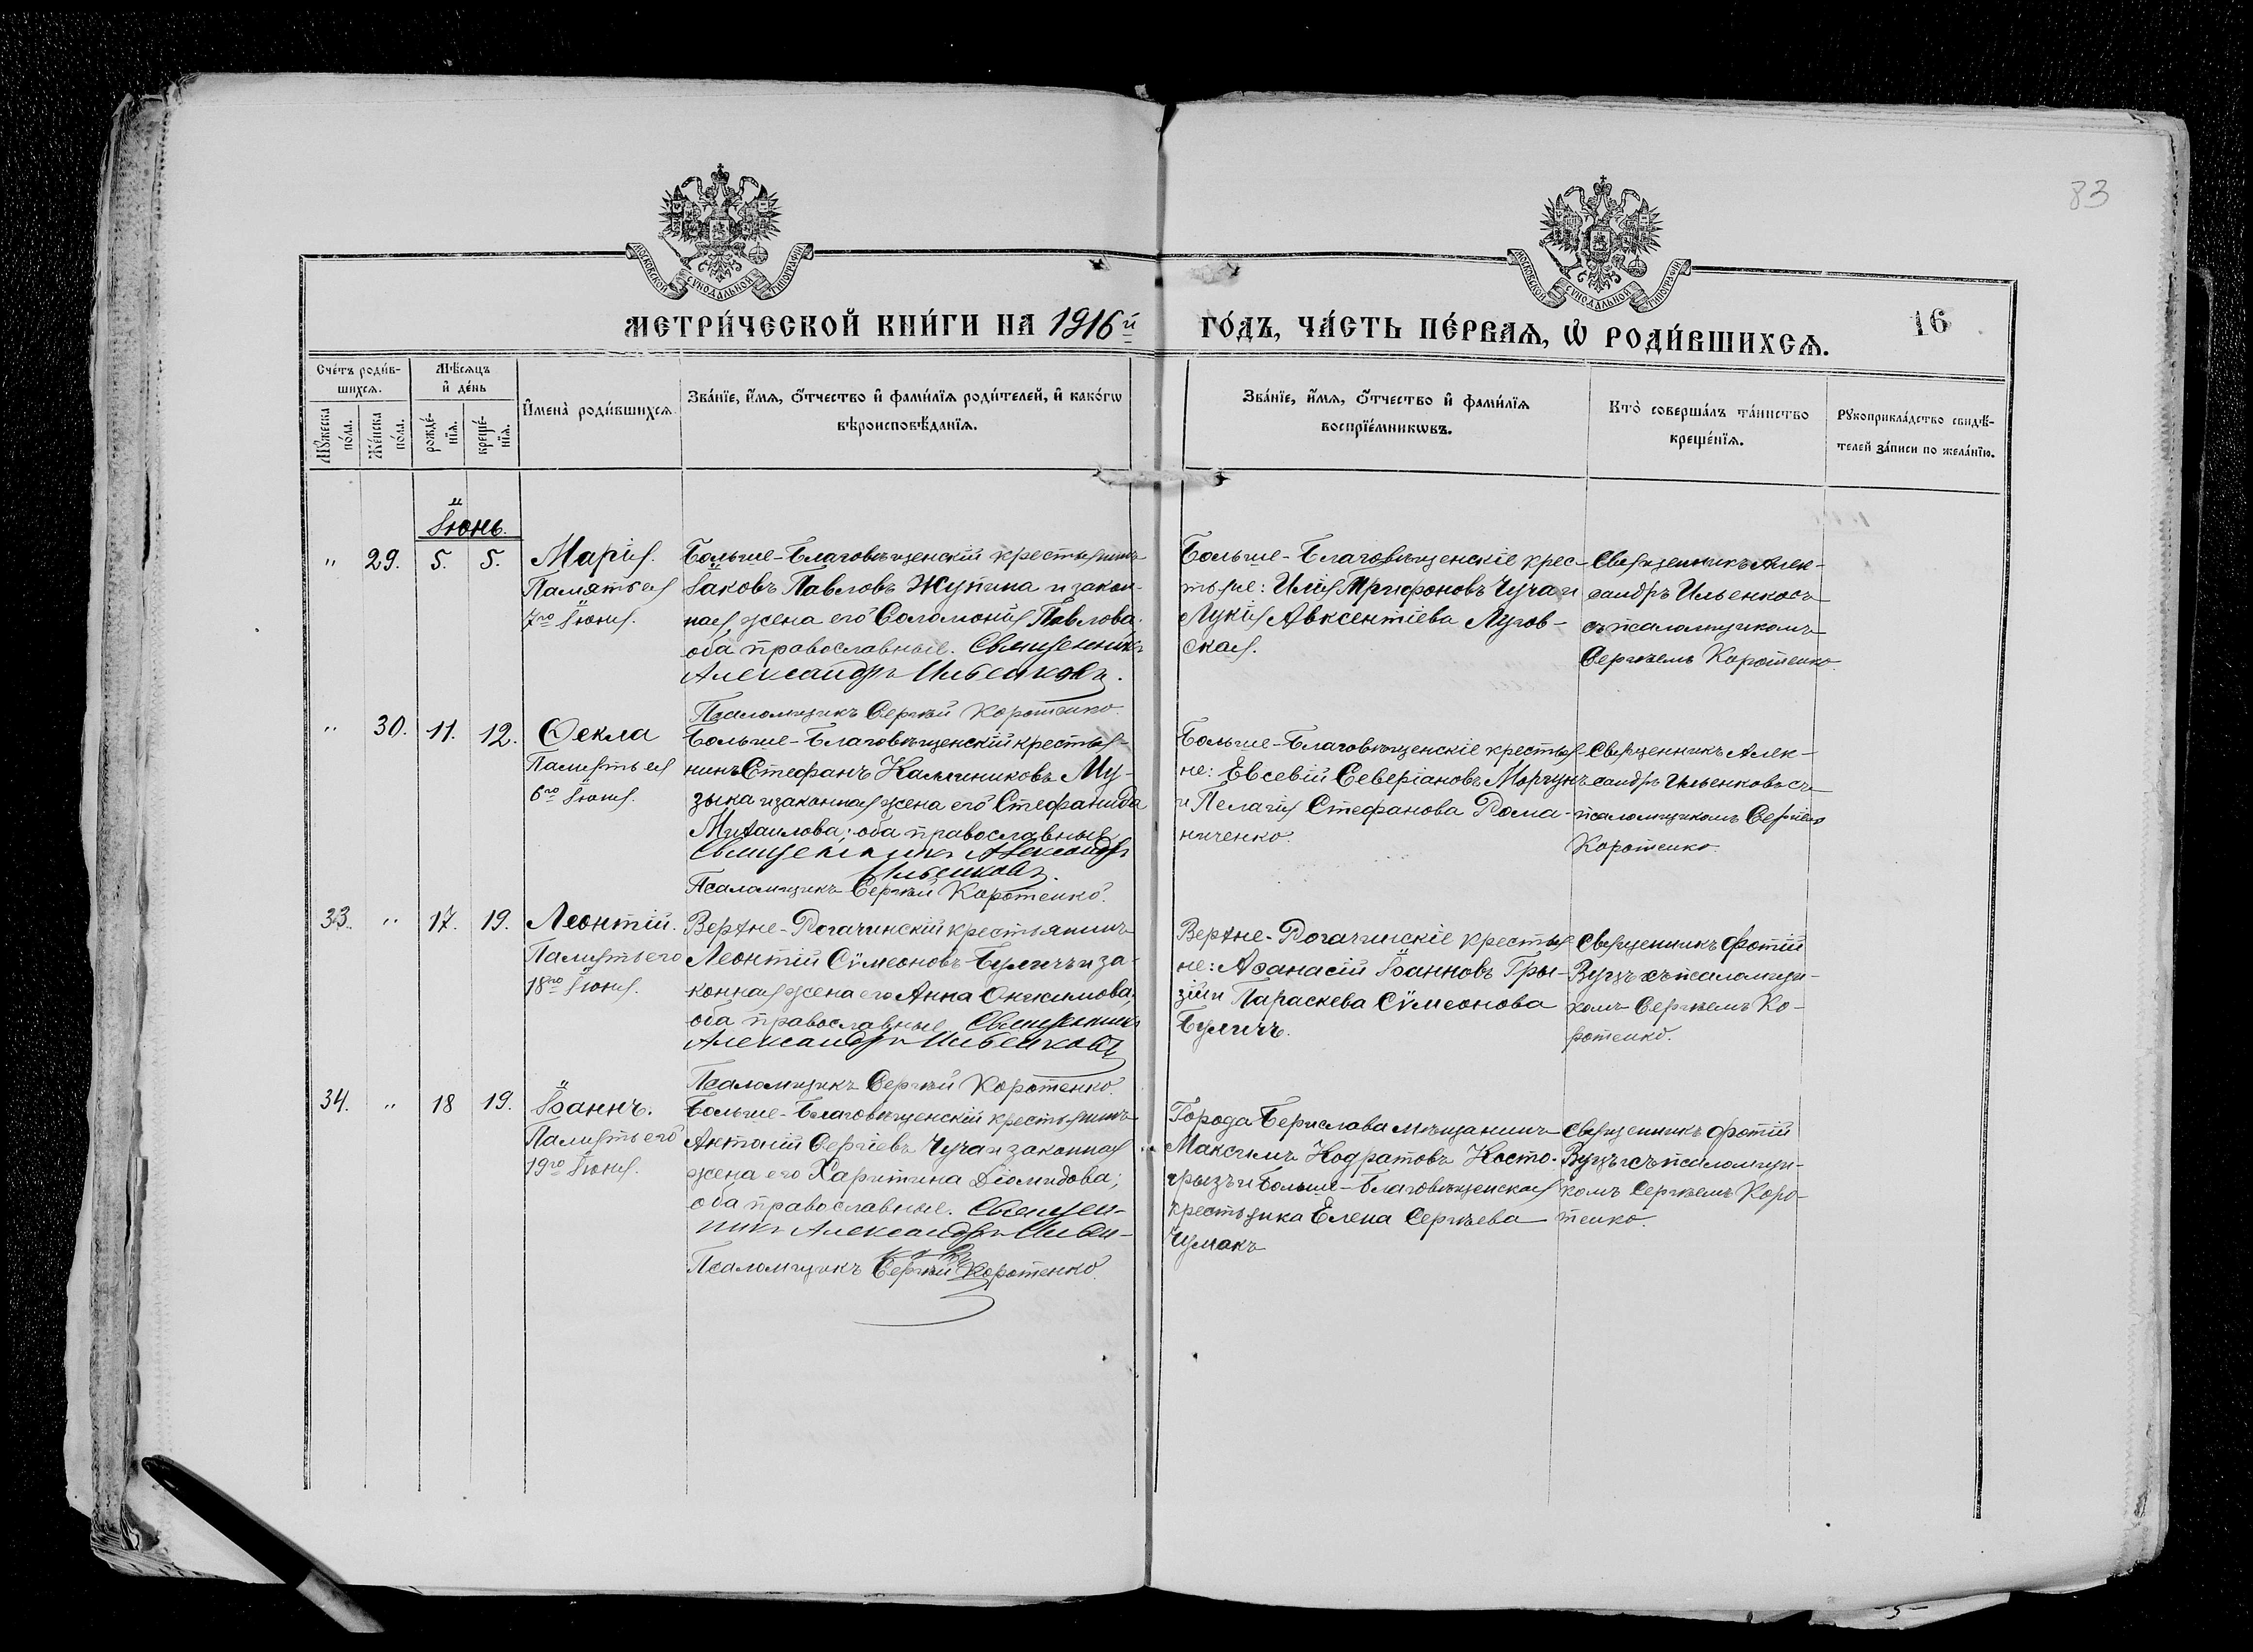 83
МОСКОВСКОЙ СѴНОДАЛЬНОЙ ТИПОГРАФІИ
МОСКОВСКОЙ СѴНОДАЛЬНОЙ ТИПОГРАФІИ
МЕТРИ́ЧЕСКОЙ КНИ́ГИ НА 1916й ГО́ДЪ, ЧА́СТЬ ПЕ́РВАѦ, Ѡ҆ РОДИ́ВШИХСѦ.
16
Сче́тъ роди́в-
шихсѧ.
Мꙋ́жеска по́ла.
Же́нска по́ла.
Мѣ́сѧцъ
и҆ де́нь
рожде́-
нїѧ.
креще́-
нїѧ.
И҆мена̀ роди́вшихсѧ
Зва́нїе, и҆́мѧ, ѻ҆́тчество и҆ фами́лїѧ роди́телей, и҆ како́гѡ
вѣроисповѣ́данїѧ.
Зва́нїе, и҆́мѧ, ѻ҆́тчество и҆ фами́лїѧ
воспрїе́мникѡвъ.
Кто̀ соверша́лъ та́инство
креще́нїѧ.
Рꙋкоприкла́дство свидѣ́-
телей за́писи по жела́нїю.
Іюнь.
" 29. 5. 5.
Марія.
Память ея
7го Іюня.
Больше-Благовѣщенскій крестьянинъ
Іаковъ Павловъ Жупина и закон-
ная жена его Соломонія Павлова;
оба православные. Священникъ
Александръ Ильенковъ.
Псаломщикъ Сергѣй Коротенко.
Больше-Благовѣщенскіе крес-
тьяне: Илія Трифоновъ Чуча и
Лукія Авксентіева Лугов-
ская.
Священникъ Алек-
сандръ Ильенковъ
съ псаломщикомъ
Сергѣемъ Коротенко.
" 30. 11. 12.
Ѳекла
Память ея
6го Іюня.
Больше-Благовѣщенскій крестья-
нинъ Стефанъ Каллиниковъ Му-
зыка и законная жена его Стефанида
Михаилова; оба православные
Священникъ Александръ
Ильенковъ.
Псаломщикъ Сергѣй Коротенко.
Больше-Благовѣщенскіе крестья-
не: Евсевій Северіановъ Моргунъ
и Пелагія Стефанова Рома-
ниченко.
Священникъ Алек-
сандръ Ильенковъ съ
псаломщикомъ Сергіемъ
Коротенко.
33. " 17. 19.
Леонтій.
Память его
18го Іюня.
Верхне-Рогачинскій крестьянинъ
Леонтій Сѵмеоновъ Буличъ и за-
конная жена его Анна Онисимова;
оба православные. Священникъ
Александръ Ильенковъ
Псаломщикъ Сергѣй Коротенко.
Верхне-Рогачинскіе крестья-
не: Аѳанасій Іоанновъ Гры-
зій и Параскева Сѵмеонова
Буличъ.
Священникъ Фотій
Вуцъ съ псаломщи-
комъ Сергѣемъ Ко-
ротенко.
34. " 18 19.
Іоаннъ.
Память его
19го Іюня.
Больше-Благовѣщенскій крестьянинъ
Антоній Сергіевъ Чуча и законная
жена его Харитина Діомидова;
оба православные. Священ-
никъ Александръ Ильен-
ковъ
Псаломщикъ Сергѣй Коротенко.
Города Берислава мѣщанинъ
Максимъ Кодратовъ Косто-
грызъ и Больше-Благовѣщенская
крестьянка Елена Сергѣева
Чумакъ
Священникъ Фотій
Вуцъ съ псаломщи-
комъ Сергѣемъ Коро-
тенко.